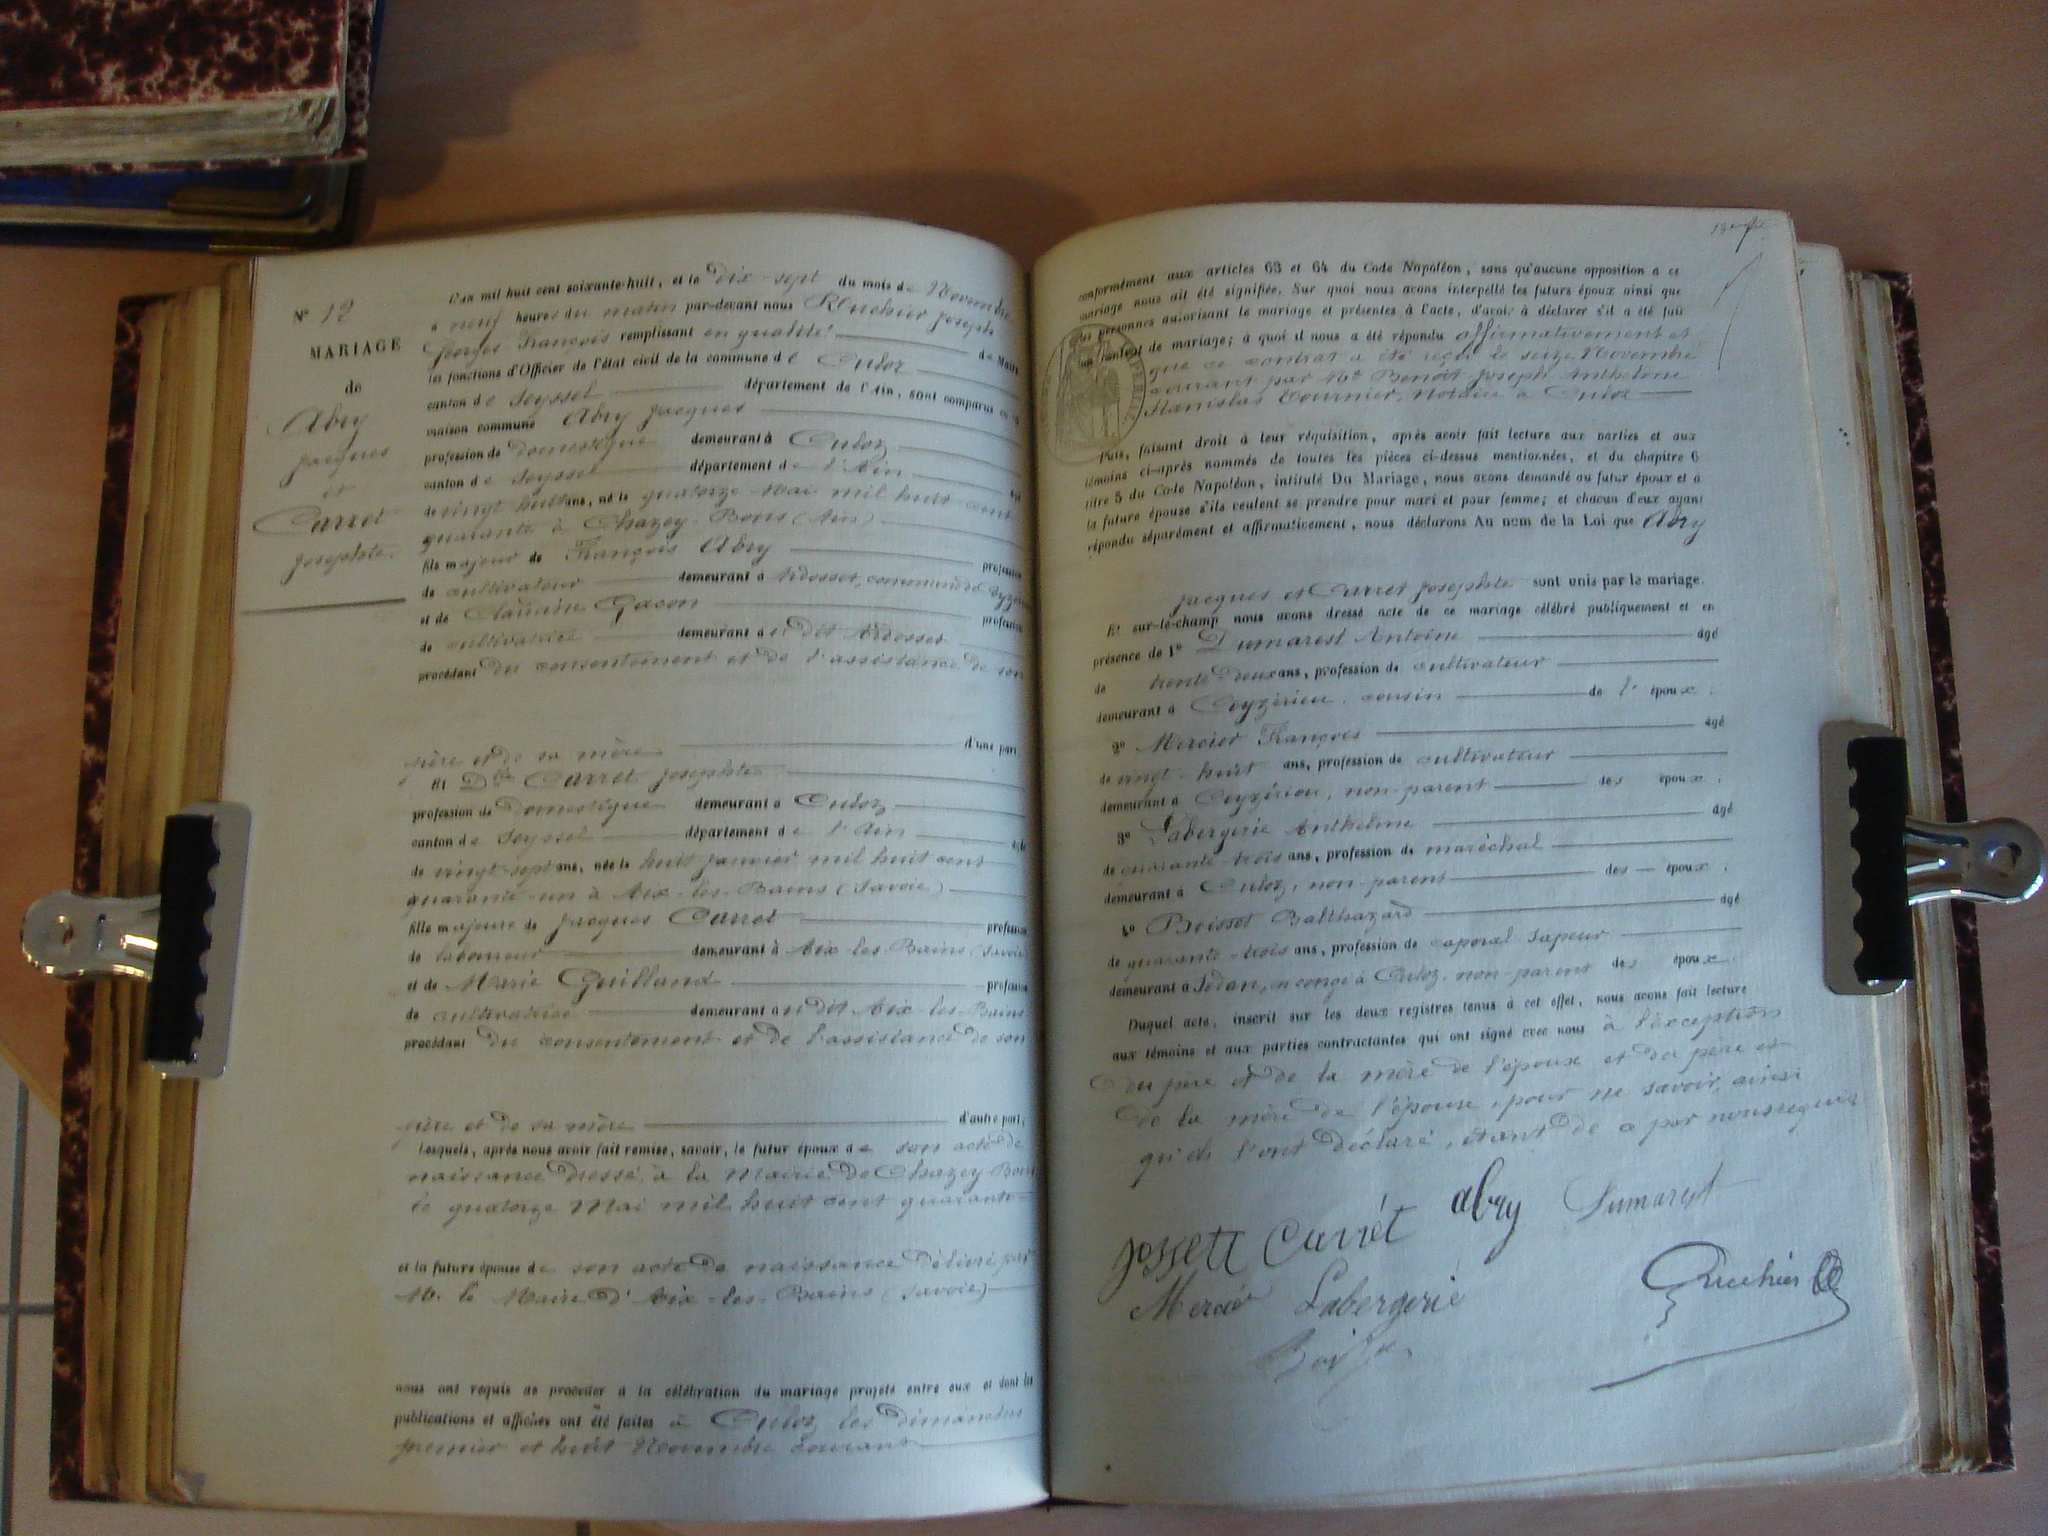 N° 12
MARIAGE
de
Abry
Jacques
et
Carret
Josephte.
L'an mil huit cent soixante-huit, et le dix-sept du mois de Novembre
à neuf heures du matin par-devant nous Ruchier Joseph
Georges François remplissant en qualité de Maire
les fonctions d'Officier de l'état civil de la commune de Culoz
canton de Seyssel département de l'Ain, sont comparus en la
maison commune Abry Jacques
profession de domestique demeurant à Culoz
canton de Seyssel département de l'Ain âgé
de vingt huit ans, né le quatorze Mai mil huit cent
quarante à Chazey-Bons (Ain)
fils majeur de François Abry profession
de cultivateur demeurant à Ardosset, commune de Ceyzérieu
et de Claudine Gacon profession
de cultivatrice demeurant au dit Ardosset
procédant du consentement et de l'assistance de son
père et de sa mère d'une part,
Et Dlle Carret Josephte
profession de Domestique demeurant à Culoz
canton de Seyssel département de l'Ain âgée
de vingt-sept ans, née le huit janvier mil huit cent
quarante-un à Aix-les-Bains (Savoie)
fille majeure de Jacques Carret profession
de laboureur demeurant à Aix-les-Bains (Savoie)
et de Marie Guilland profession
de cultivatrice demeurant au dit Aix-les-Bains
procédant du consentement et de l'assistance de son
père et de sa mère d'autre part,
Lesquels, après nous avoir fait remise, savoir, le futur époux de son acte de
naissance dressé à la Mairie de Chazey-Bons
le quatorze Mai mil huit cent quarante
et la future épouse de son acte de naissance délivré par
M. le Maire d'Aix-les-Bains (Savoie)
nous ont requis de procéder à la célébration du mariage projeté entre eux et dont les
publications et affiches ont été faites à Culoz les dimanches
premier et huit Novembre courant
conformément aux articles 63 et 64 du Code Napoléon, sans qu'aucune opposition à ce
mariage nous ait été signifiée. Sur quoi nous avons interpellé les futurs époux ainsi que
les personnes autorisant le mariage et présentes à l'acte, d'avoir à déclarer s'il a été fait
un contrat de mariage; à quoi il nous a été répondu affirmativement et
que ce contrat a été reçu le seize Novembre
courant par Me Benoit Joseph Anthelme
Stanislas Tournier, notaire à Culoz
Puis, faisant droit à leur réquisition, après avoir fait lecture aux parties et aux
témoins ci-après nommés de toutes les pièces ci-dessus mentionnées, et du chapitre 6
titre 5 du Code Napoléon, intitulé Du Mariage, nous avons demandé au futur époux et à
la future épouse s'ils veulent se prendre pour mari et pour femme; et chacun d'eux ayant
répondu séparément et affirmativement, nous déclarons Au nom de la Loi que Abry
Jacques et Carret Josephte sont unis par le mariage.
Et sur-le-champ nous avons dressé acte de ce mariage célébré publiquement et en
présence de 1° Dumarest Antoine âgé
de trente deux ans, profession de cultivateur
demeurant à Ceyzérieu, cousin de l'époux;
2° Mercier François âgé
de vingt-huit ans, profession de cultivateur
demeurant à Ceyzérieu, non-parent des époux;
3° Labergerie Anthelme âgé
de quarante-trois ans, profession de maréchal
demeurant à Culoz, non-parent des époux;
4° Boisset Balthazard âgé
de quarante-trois ans, profession de caporal sapeur
demeurant à Sedan, en congé à Culoz, non-parent des époux.
Duquel acte, inscrit sur les deux registres tenus à cet effet, nous avons fait lecture
aux témoins et aux parties contractantes qui ont signé avec nous à l'exception
du père et de la mère de l'époux et du père et
de la mère de l'épouse, pour ne savoir, ainsi
qu'ils l'ont déclaré, étant de ce par nous requis
Jossett Carrét abry Dumarest
Mercier Labergerie Ruchier